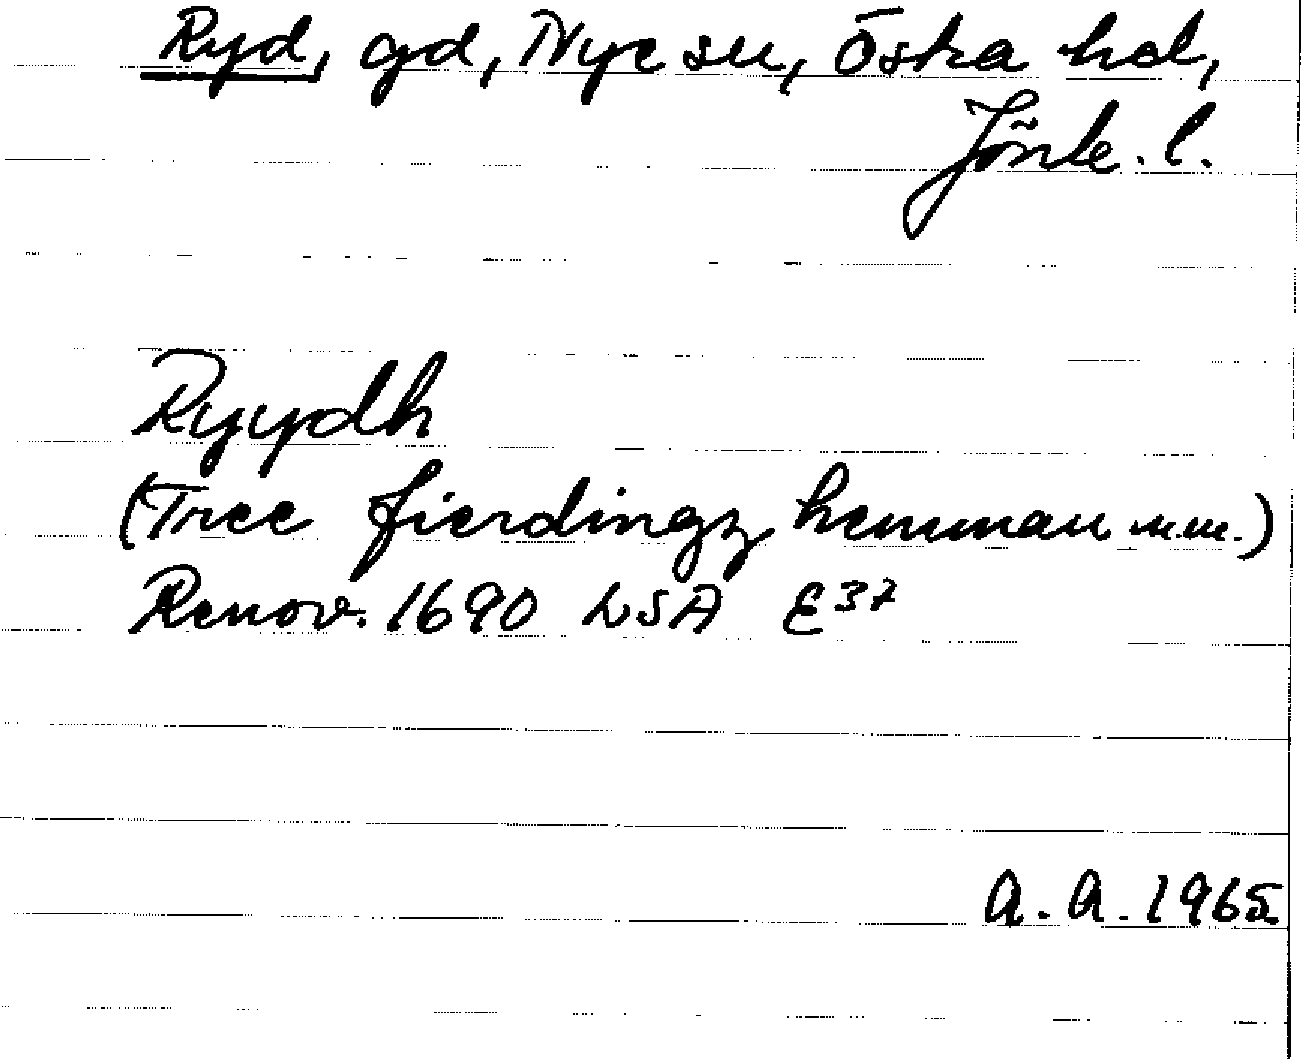 Ryd, gd, Nye sn, Östra hd,
Jönk. l.
Ryydh
(Tree fierdingz hemman m.m.)
Renov. 1690 LSA E37
A. A. 1965